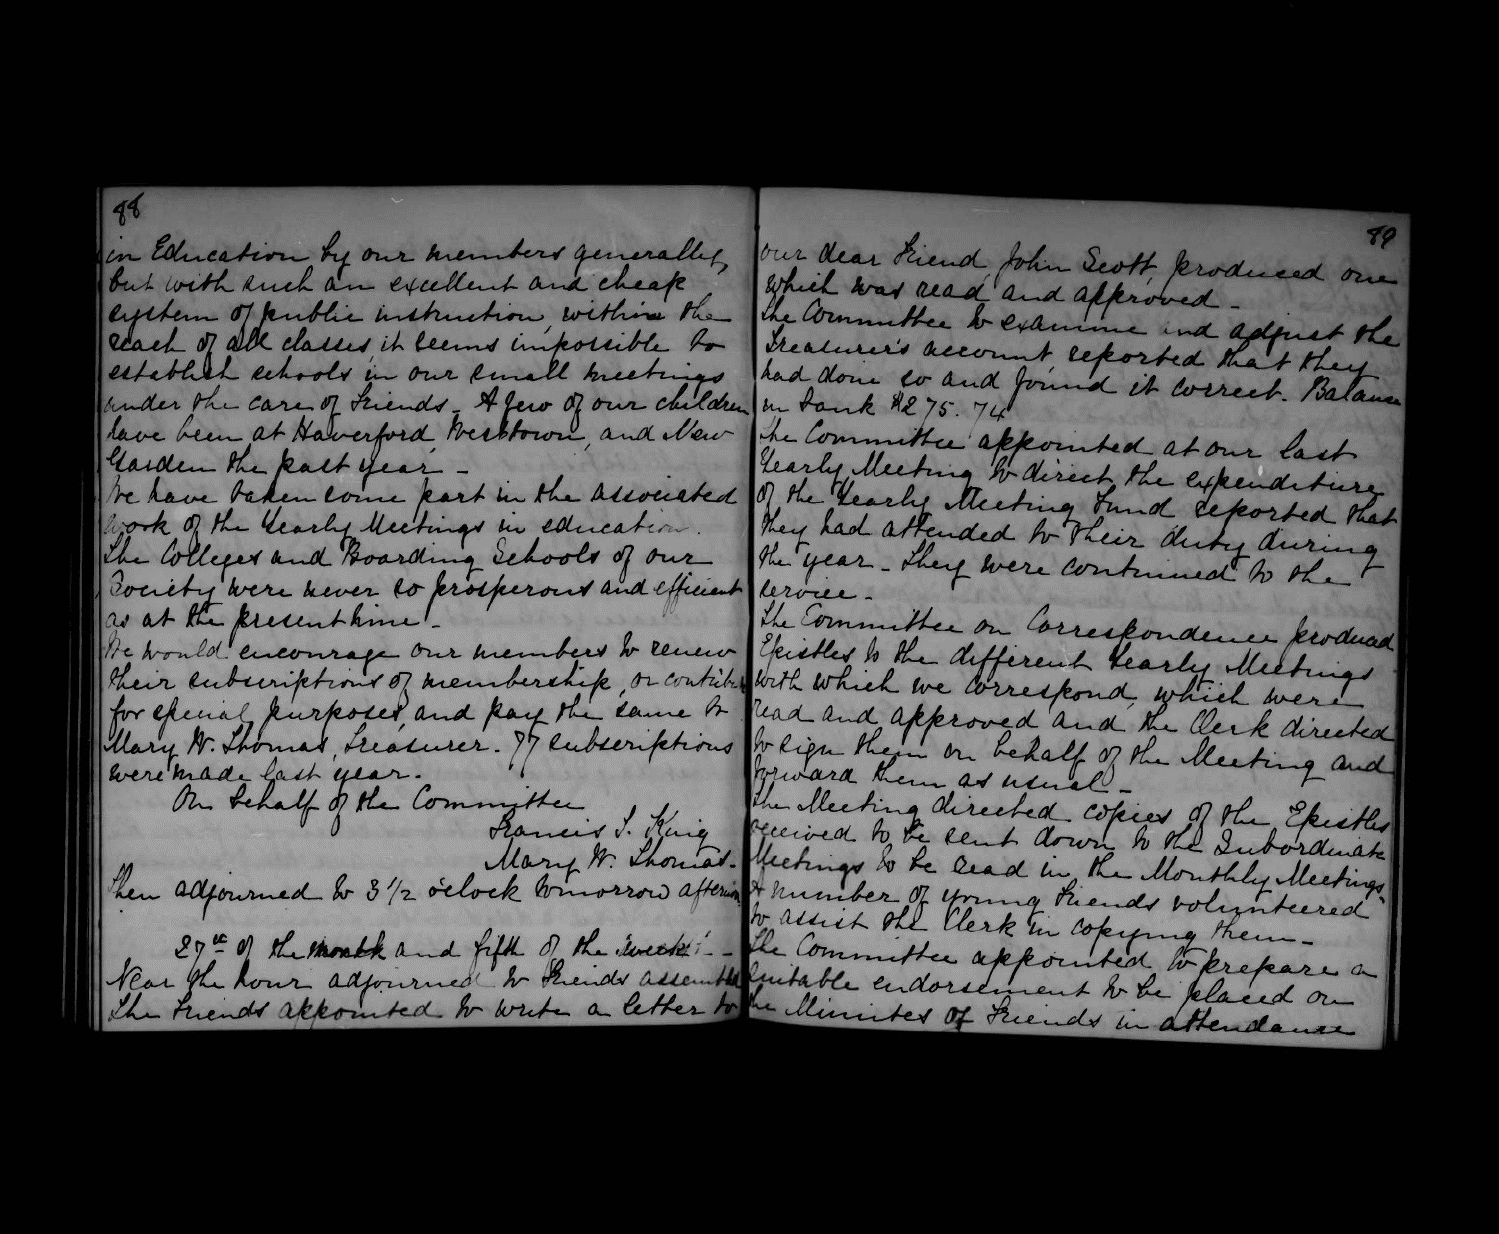 88
in Education by our members generally,
but with such an excellent and cheap
system of public instruction, within the
reach of all classes, it seems impossible to
establish schools in our small meetings
under the care of Friends - A few of our children
have been at Haverford, Westtown, and New
Garden the past year -
We have taken some part in the associated
work of the Yearly Meetings in education.
The Colleges and Boarding Schools of our
Society were never so prosperous and efficient
as at the present time. -
We would encourage our members to renew
their subscriptions of membership, or contribute
for special purposes, and pay the same to
Mary W. Thomas, Treasurer. 77 subscriptions
were made last year.
On behalf of the Committee
Francis T. King
Mary W. Thomas -
Then adjourned to 3 1/2 o'clock tomorrow afternoon
27th of the month and fifth of the week -
Near the hour adjourned to Friends assembled
The Friends appointed to write a letter to
89
our dear Friend, John Scott, produced one
which was read and approved -
The Committee to examine and adjust the
Treasurer's account, reported that they
had done so and found it correct. Balance
in bank $275.74
The Committee appointed at our last
Yearly Meeting to direct the expenditure
of the Yearly Meeting Fund reported that
they had attended to their duty during
the year - They were continued to the
service -
The Committee on Correspondence produced
Epistles to the different Yearly Meetings
with which we correspond, which were
read and approved and the Clerk directed
to sign them on behalf of the Meeting and
forward them as usual -
The Meeting directed copies of the Epistles
received to be sent down to the Subordinate
Meetings to be read in the Monthly Meetings.
A number of young Friends volunteered
to assist the Clerk in copying them -
The Committee appointed to prepare a
suitable endorsement to be placed on
the Minutes of Friends in attendance